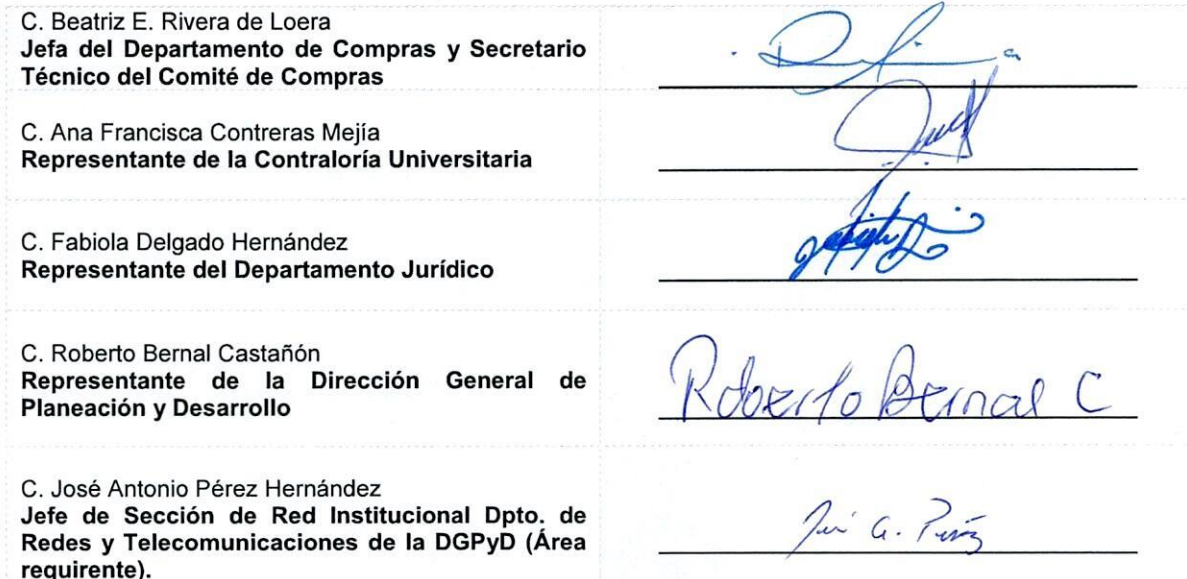 C. Beatriz E. Rivera de Loera
Jefa del Departamento de Compras y Secretario
Técnico del Comité de Compras
C. Ana Francisca Contreras Mejía
Representante de la Contraloría Universitaria
C. Fabiola Delgado Hernández
Representante del Departamento Jurídico
C. Roberto Bernal Castañón
Representante de la Dirección General de
Planeación y Desarrollo
Roberto Bernal C
C. José Antonio Pérez Hernández
Jefe de Sección de Red Institucional Dpto. de
Redes y Telecomunicaciones de la DGPyD (Área
requirente).